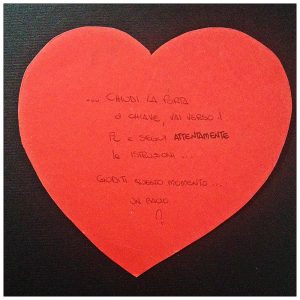 ... CHIUDI LA PORTA
A CHIAVE, VAI VERSO I
PC E SEGUI ATTENTAMENTE
le ISTRUZIONI ...
GODITI QUESTO MOMENTO ...
UN BACIO